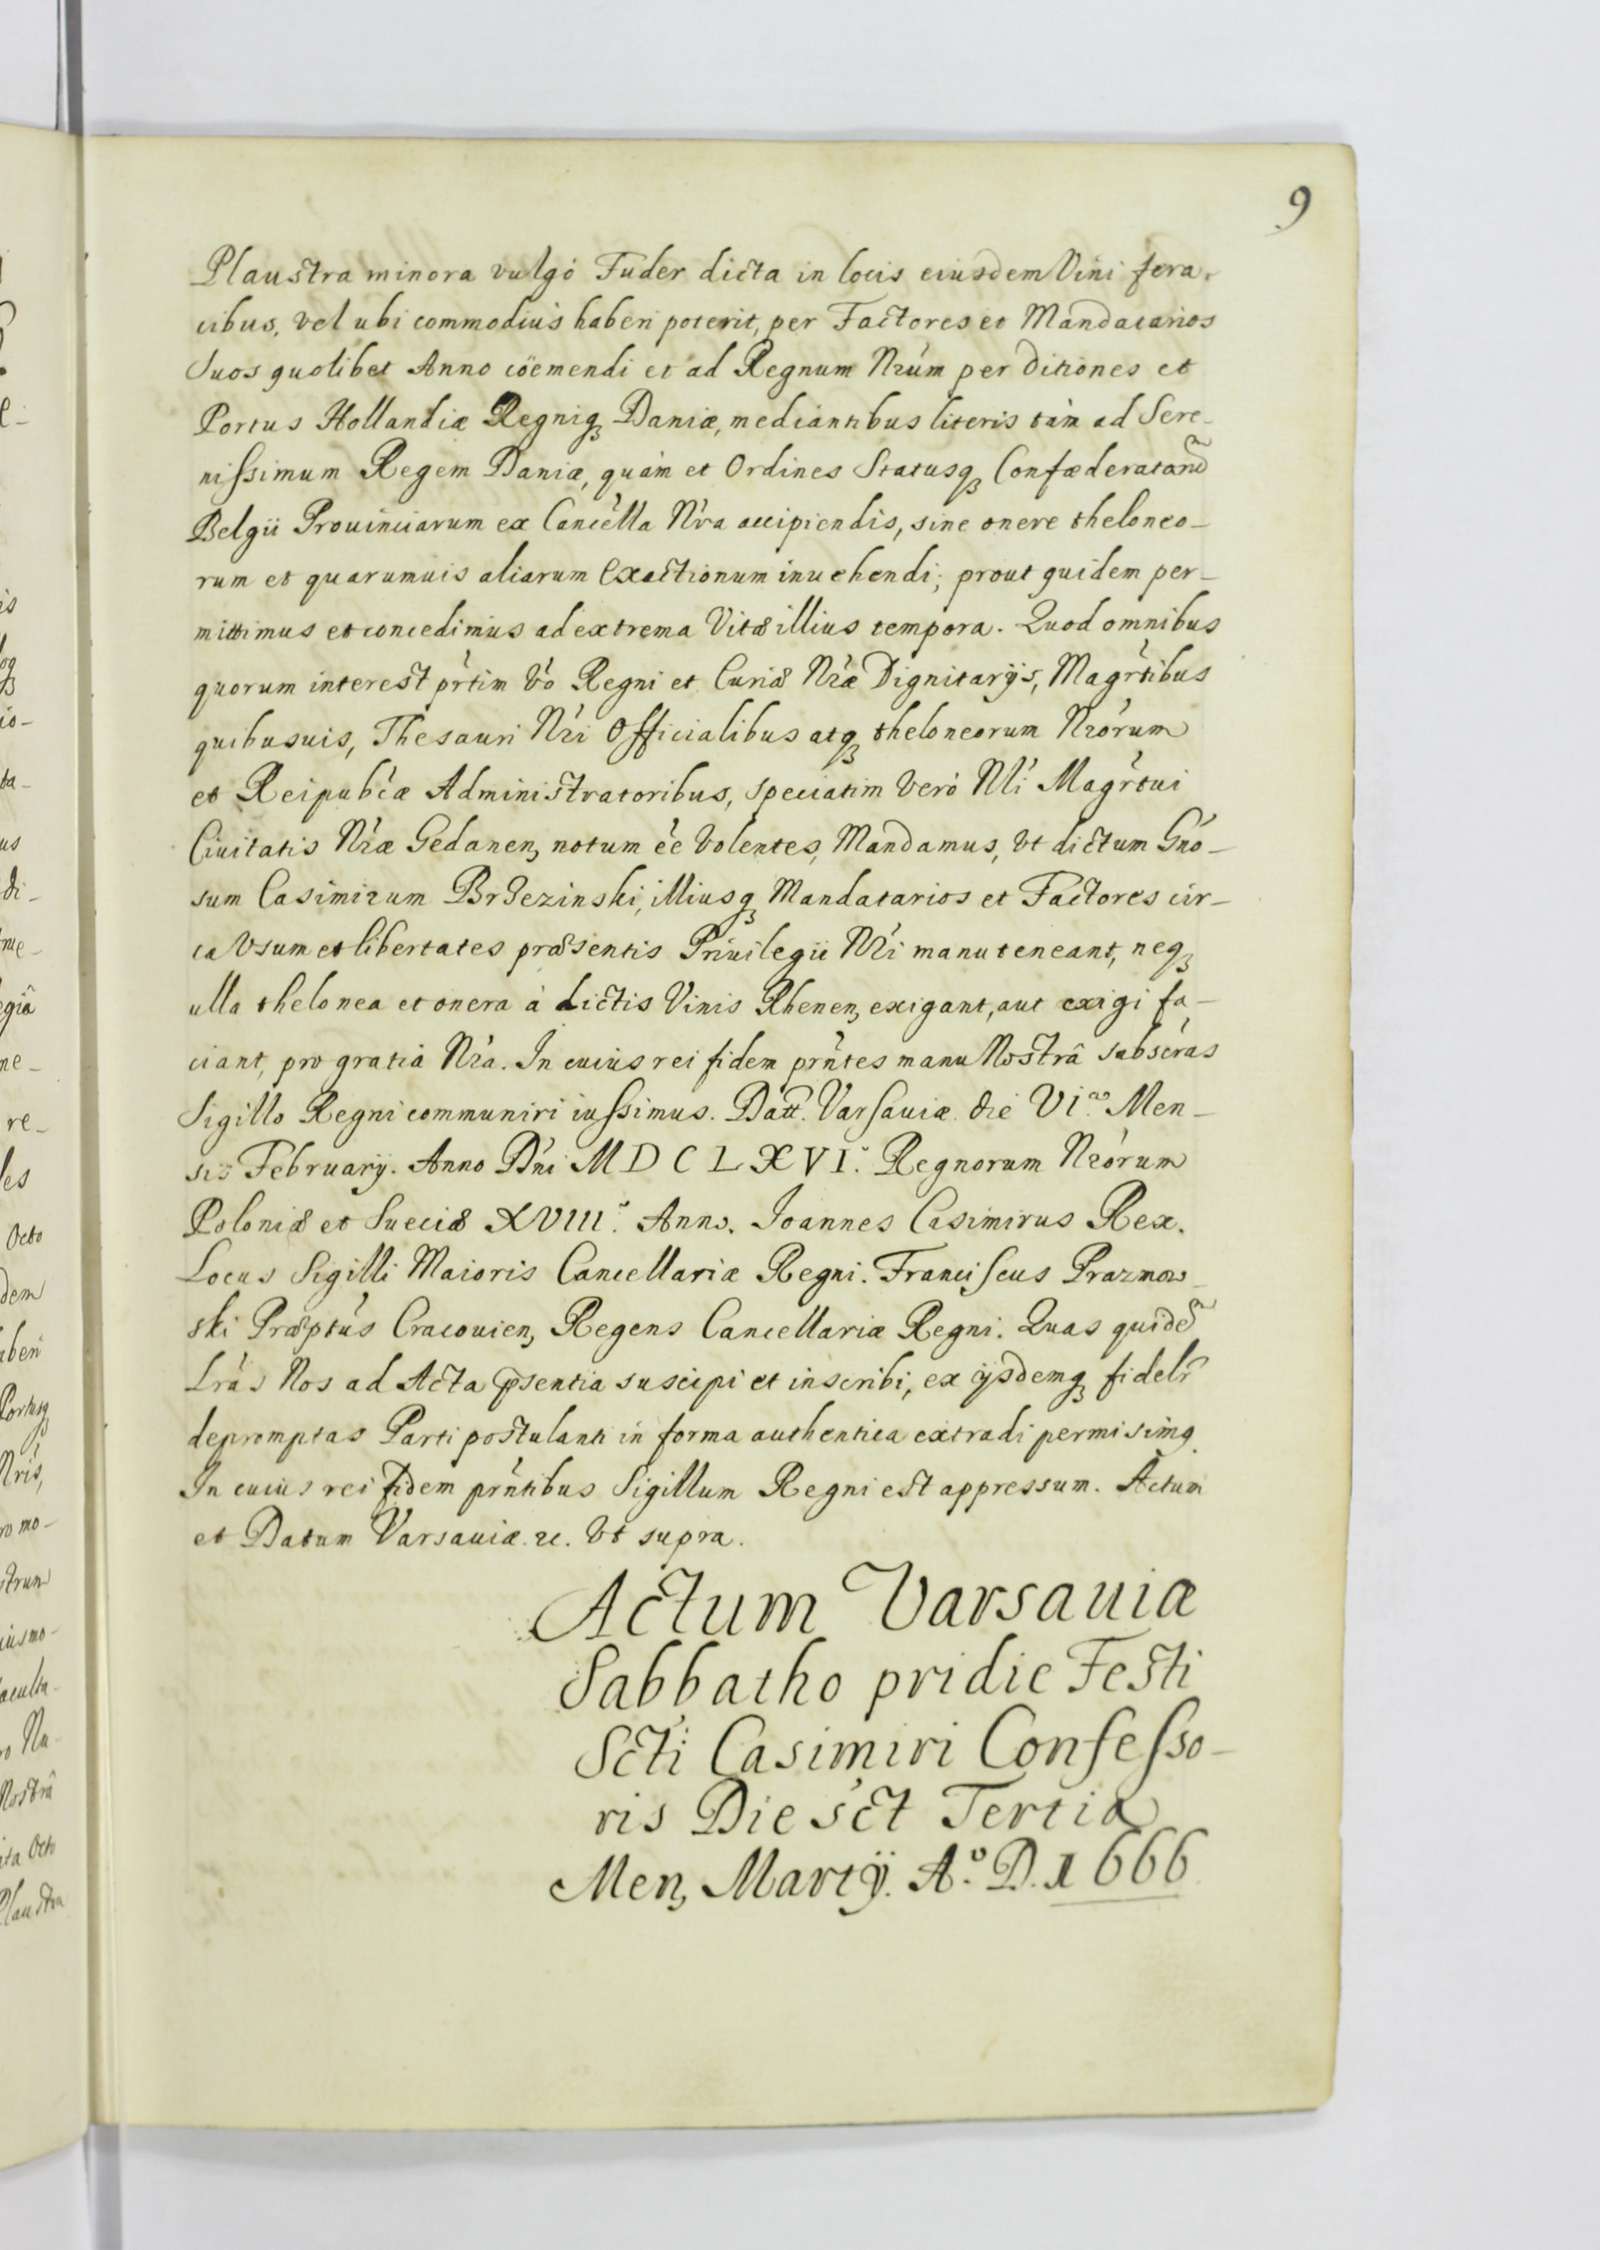 9
Plaustra minora vulgò Fuder dicta in locis eiusdem Vini fera-
cibus, vel ubi commodius haberi poterit, per Factores et Mandatarios
Suos quolibet Anno cöemendi et ad Regnum Nrúm per Ditiones et
Portus Hollandiæ Regniq; Daniæ, mediantibus literis tàm ad Sere-
nissimum Regem Daniæ, quàm et Ordines Statusq; Confæderatarũ
Belgii Prouinciarum ex Cancélla Nŕa accipiendis, sine onere theloneo-
rum et quarumuis aliarum Exactionum inuehendi; prout quidem per-
mittimus et concedimus ad extrema Vitæ illius tempora. Quod omnibus
quorum interest pŕtim vó Regni et Curiæ Nŕæ Dignitarijs, Magŕtibus
quibusuis, Thesauri Nŕi Officialibus atq; theloneorum Nrórum
et Reipub́cæ Administratoribus, speciatim verò Nŕi Magŕtui
Ciuitatis Nŕæ Gedanen, notum ée Volentes, Mandamus, Vt dictum Gńo-
sum Casimirum Brzezinski, illiusq; Mandatarios et Factores cir-
ca Vsum et libertates præsentis Priuilegii Nŕi manuteneant, neq;
ulla thelonea et onera à dictis Vinis Rhenen, exigant, aut exigi fa-
ciant, pro gratia Nŕa. In cuius rei fidem pŕntes manu Nostrâ subscŕas
Sigillo Regni communiri iussimus. Datt. Varsauiæ die VI.to Men-
sis February. Anno Dńi MDCLXVI.o Regnorum Nrórum
Poloniæ et Sueciæ XVIII.o Anno. Ioannes Casimirus Rex.
Locus Sigilli Maioris Cancellariæ Regni. Franciscus Prazmow-
ski Præptús Cracouien, Regens Cancellariæ Regni. Quas quidẽ
Lrás Nos ad Acta p̃sentia suscipi et inscribi, ex ijsdemq; fidelr̃
depromptas Parti postulanti in forma authentica extradi permisimq
In cuius rei fidem pŕntibus Sigillum Regni est appressum. Actum
et Datum Varsauiæ. &c. Vt supra.
Actum Varsauiæ
Sabbatho pridie Festi
Scti Casimiri Confesso-
ris Die sćt Tertia
Men, Martÿ. A.o D. 1666